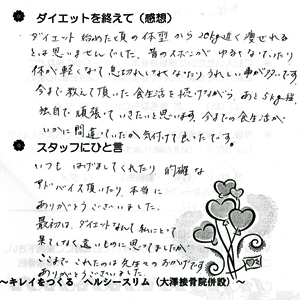 ダイエットを終えて（感想）
ダイエット始めた頃の体型から20kg近く痩せれる
とは思いませんでした。昔のズボンがゆるくなったり
体が軽くなって息切れしなくなたりうれしい事が多いです。
今まで教して頂いた食生活を続けながら、あと5kg程、
独自で頑張っていきたいと思います。今までの食生活が
いかに間違っていたか気付けて良かたです。
スタッフにひと言
いつもはげましてくれたり、的確な
アドバイス頂いたり、本当に
ありがとうございました。
最初は、ダイエットなんて私にとって
果てしなく遠いものに思ってましたが
ここまでこれたのは先生のおかげです。
ありがとうございました。
～キレイをつくる ヘルシースリム（大澤接骨院併設）～